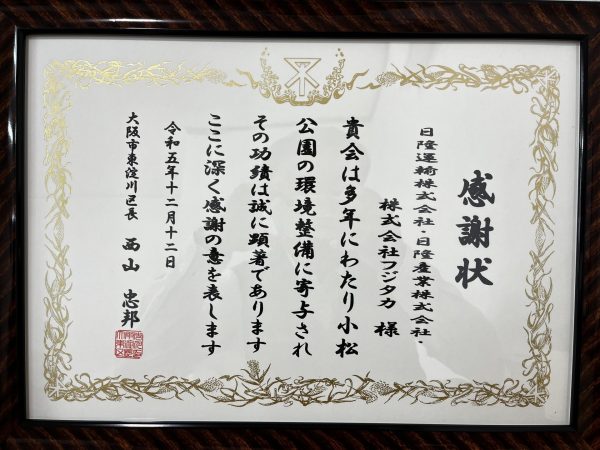 感謝状
日隆運輸株式会社・日隆産業株式会社・
株式会社フジタカ 様
貴会は多年にわたり小松
公園の環境整備に寄与され
その功績は誠に顕著であります
ここに深く感謝の意を表します
令和五年十二月十二日
大阪市東淀川区長 西山 忠邦